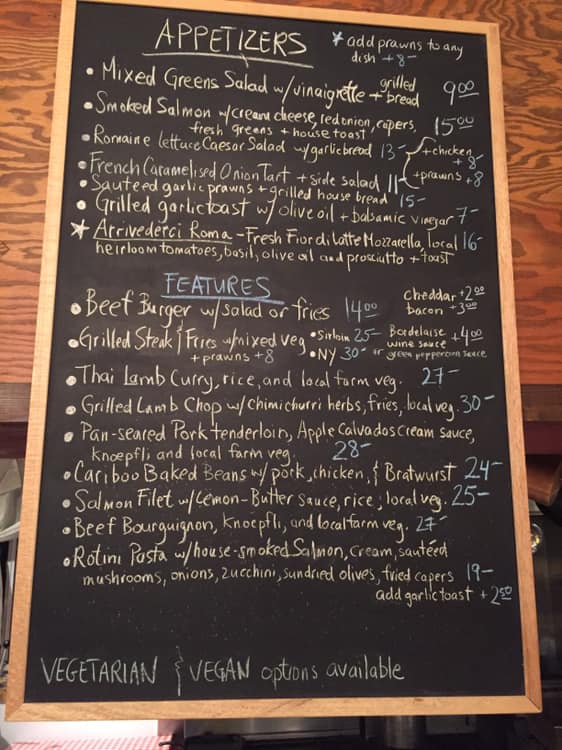 APPETIZERS
* add prawns to any dish +8-
• Mixed Greens Salad w/vinaigrette + grilled bread 9.00
• Smoked Salmon w/cream cheese, red onion, capers,
fresh greens + house toast 15.00
• Romaine lettuce Caesar Salad w/garlic bread 13- +chicken +8-
• French Caramelised Onion Tart + side salad 11- +prawns +8
• Sauteed garlic prawns + grilled house bread 15-
• Grilled garlic toast w/ olive oil + balsamic vinegar 7-
* Arrivederci Roma - Fresh Fior di Latte Mozzarella, local 16-
heirloom tomatoes, basil, olive oil and prosciutto + toast
FEATURES
• Beef Burger w/salad or fries 14.00
Cheddar +2.00
bacon +3.00
• Grilled Steak & Fries w/mixed veg • Sirloin 25-
+ prawns +8 • NY 30-
Bordelaise wine sauce +4.00
or green peppercorn sauce
• Thai Lamb Curry, rice, and local farm veg. 27-
• Grilled Lamb Chop w/Chimichurri herbs, fries, local veg. 30-
• Pan-seared Pork tenderloin, Apple Calvados Cream sauce,
knoepfli and local farm veg. 28-
• Cariboo Baked Beans w/ pork, chicken, & Bratwurst 24-
• Salmon Filet w/Lemon-Butter Sauce, rice, local veg. 25-
• Beef Bourguignon, Knoepfli, and local farm veg. 27-
• Rotini Pasta w/house-smoked Salmon, cream, sautéed
mushrooms, onions, zucchini, sundried olives, fried capers 19-
add garlic toast +2.50
VEGETARIAN & VEGAN options available